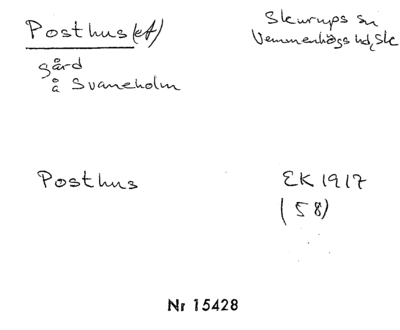 Posthus(et)
Skurups sn
Vemmenhögs hd, Sk
gård
å Svaneholm
Posthus
EK 1917
(58)
Nr 15428